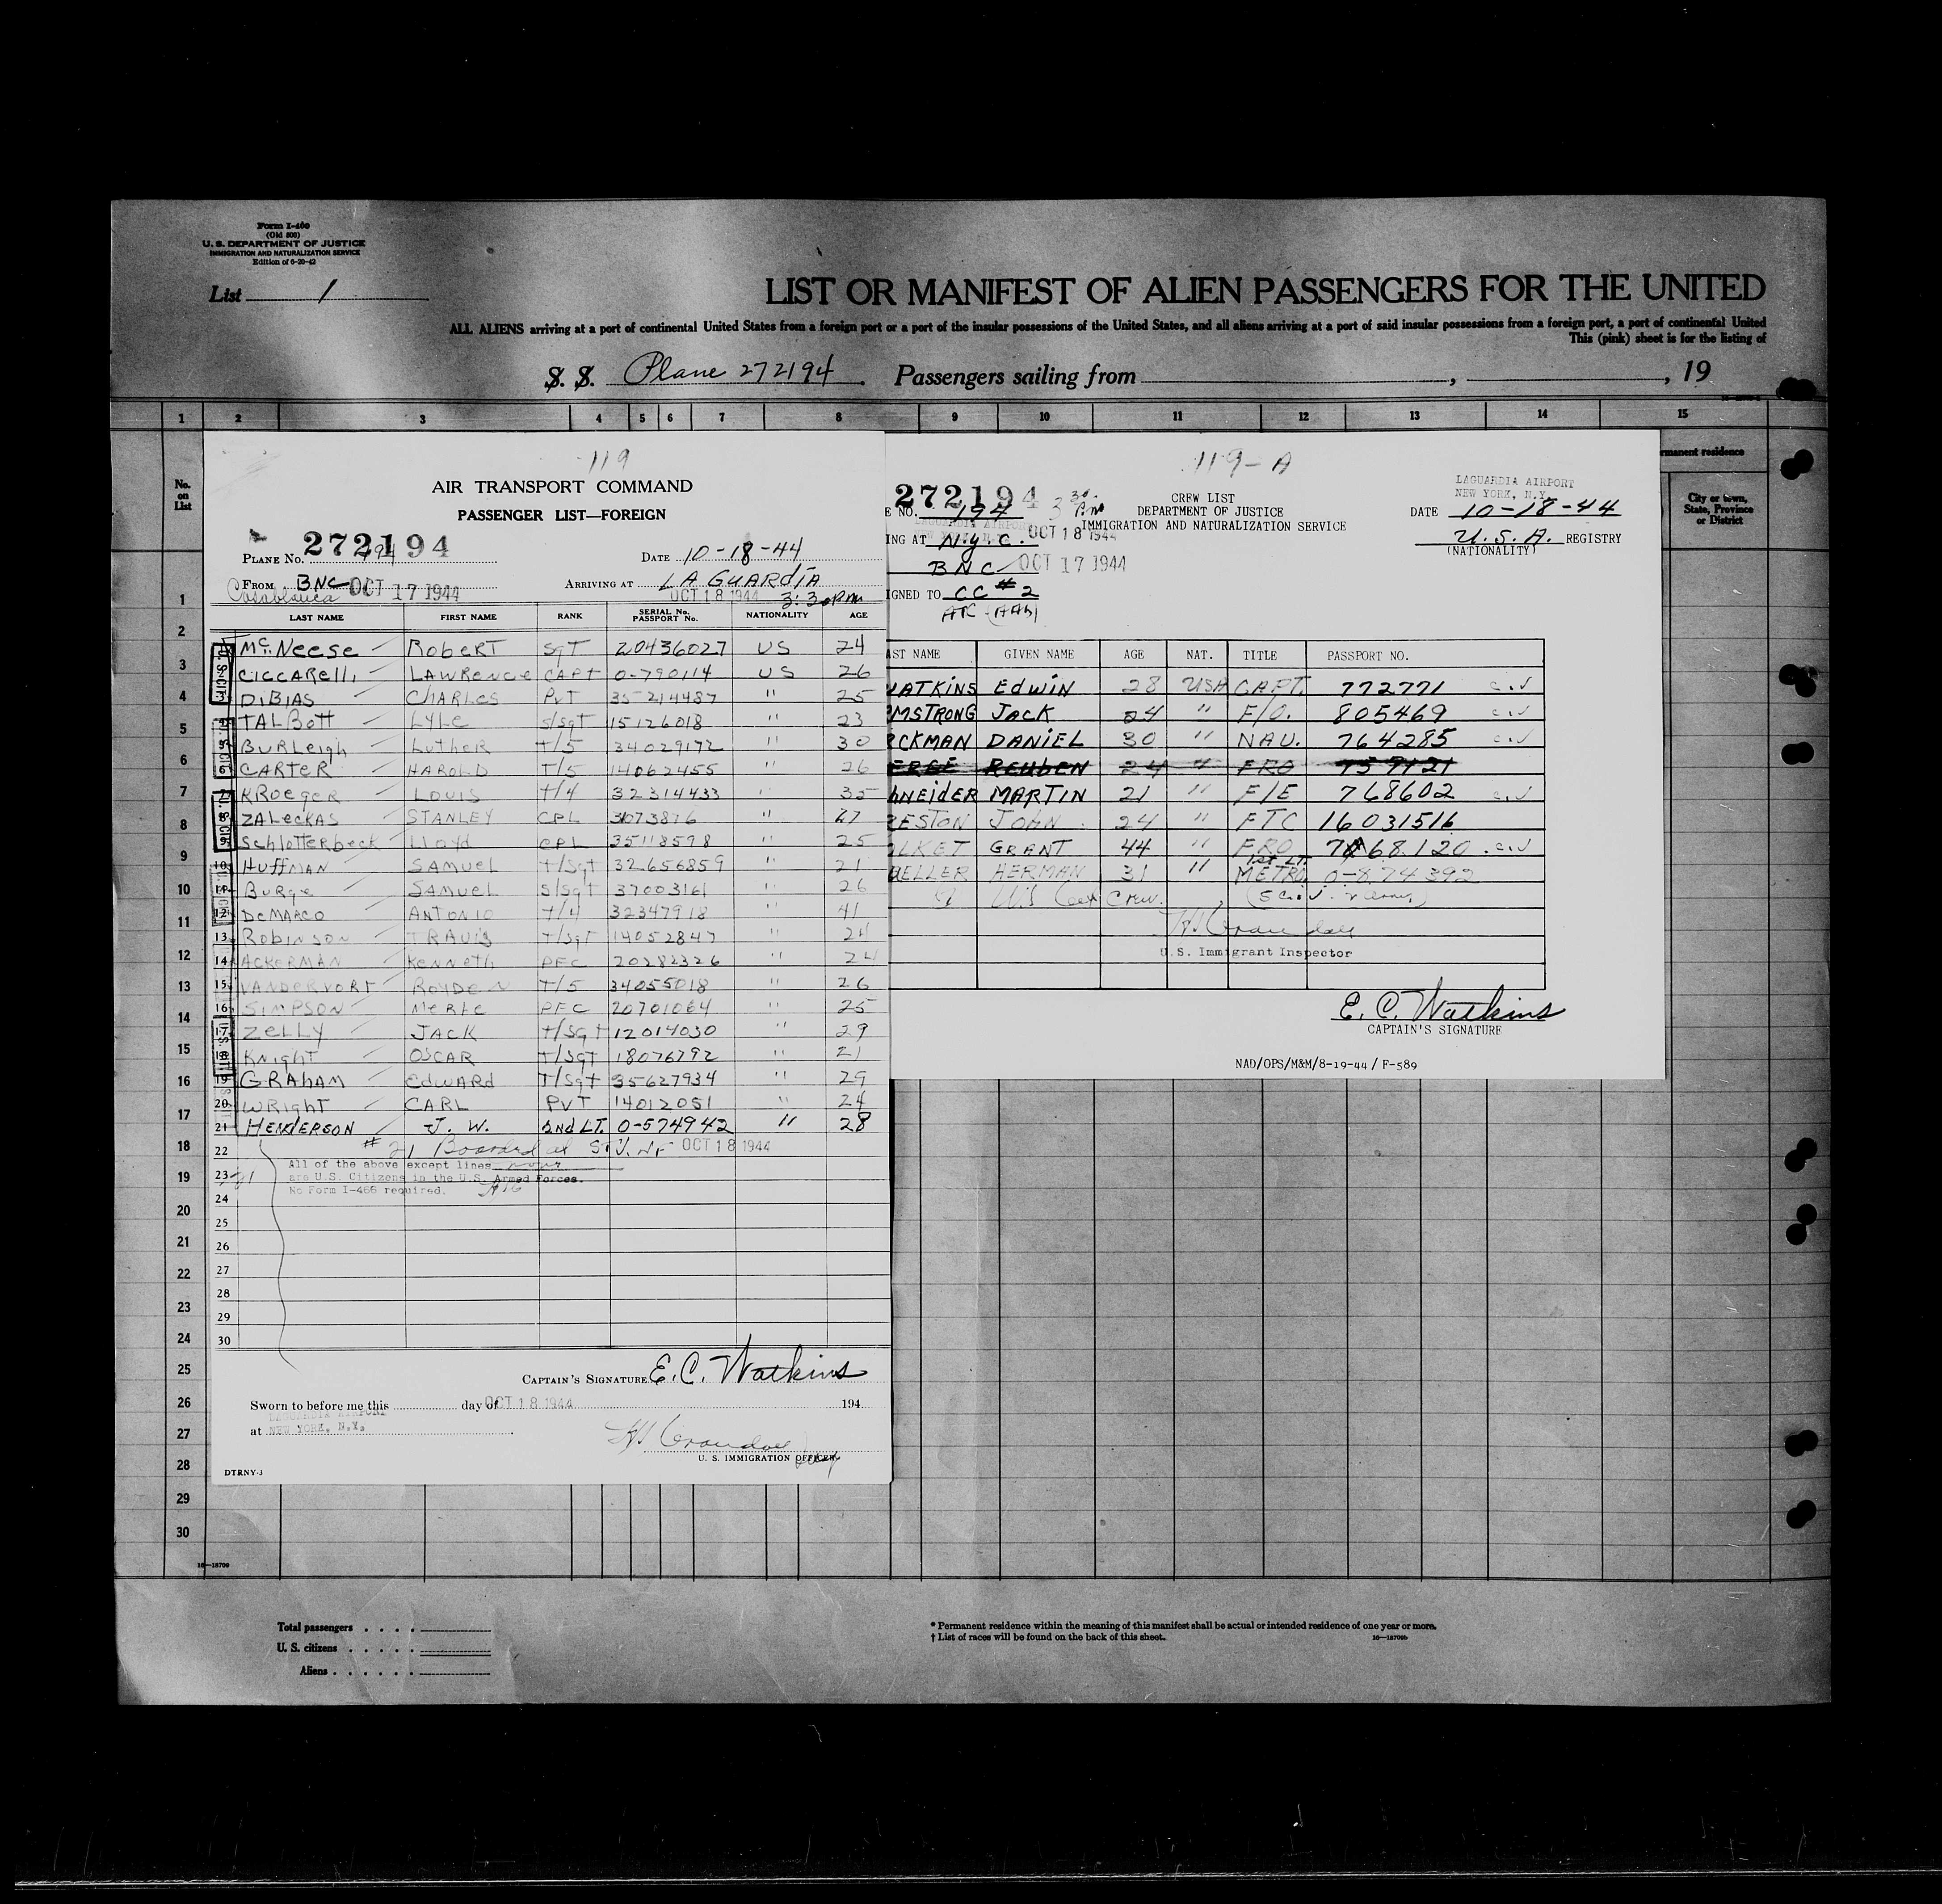 Form I-466
(Old 500)
U. S. DEPARTMENT OF JUSTICE
IMMIGRATION AND NATURALIZATION SERVICE
Edition of 6-20-42
List 1
LIST OR MANIFEST OF ALIEN PASSENGERS FOR THE UNITED
ALL ALIENS arriving at a port of continental United States from a foreign port or a port of the insular possessions of the United States, and all aliens arriving at a port of said insular possessions from a foreign port, a port of continental United
This (pink) sheet is for the listing of
S. S. Plane 272194 Passengers sailing from , , 19
1 2 3 4 5 6 7 8 9 10 11 12 13 14 15
No. on List
rmanent residence
City or town, State, Province or District
119
AIR TRANSPORT COMMAND
PASSENGER LIST—FOREIGN
PLANE No. 272194 194 DATE 10-18-44
FROM BNC OCT 17 1944 ARRIVING AT LA GUARDIA
Casablanca OCT 18 1944 3:30 PM
LAST NAME FIRST NAME RANK SERIAL No. PASSPORT No. NATIONALITY AGE
McNeese Robert SgT 20436027 US 24
CICCARelli LAWRENCE CAPT 0-790114 US 26
DiBIAS CHARLES PvT 35214487 " 25
TALBott LYLE S/Sgt 15126018 " 23
BURLeigh LutHER T/5 34029172 " 30
6 CARTER HAROLD T/5 14062455 " 26
7 KROEGER LOUIS T/4 32314433 " 35
ZALECKAS STANLEY CPL 31073876 " 27
9 Schlotterbeck Lloyd CPL 35118598 " 25
10 HuffMAN SAMUEL T/Sgt 32656859 " 21
Burge SAMUEL S/Sgt 37003161 " 26
12 DeMARCO ANTONIO T/4 32347918 " 41
13 RobinSON TRAVIS T/SgT 14052847 " 24
14 ACKERMAN KENNETH PFC 20282326 " 24
15 VANDERVORT ROYDEN T/5 34055018 " 26
16 SIMPSON MERLE PFC 20701064 " 25
17 ZELLY JACK T/Sgt 12014030 " 29
18 KNIGHT OSCAR T/SgT 18076792 " 21
19 GRAHAM EDWARD T/Sgt 35627934 " 29
20 WRIGHT CARL PVT 14012051 " 24
21 HENDERSON J. W. 2ND LT. 0-574942 " 28
22 # 21 Boarded at STV. NF OCT 18 1944
All of the above except lines none
23 are U.S. Citizens in the U.S. Armed Forces.
No Form I-466 required.
24
25
26
27
28
29
30
CAPTAIN'S SIGNATURE E. C. Watkins
Sworn to before me this day of OCT 18 1944 194
at LAGUARDIA AIRPORT
NEW YORK, N.Y.
U. S. IMMIGRATION OFFICER
DTRNY-3
119-A
272194 3 30 PM
E NO. 194
CREW LIST
DEPARTMENT OF JUSTICE
IMMIGRATION AND NATURALIZATION SERVICE
LAGUARDIA AIRPORT
NEW YORK, N.Y.
DATE 10-18-44
ING AT N.Y.C. OCT 18 1944
U.S.A. REGISTRY
(NATIONALITY)
BNC OCT 17 1944
IGNED TO CC #2
ATC
AST NAME GIVEN NAME AGE NAT. TITLE PASSPORT NO.
WATKINS EDWIN 28 USA CAPT. 772771 civ
MSTRONG JACK 24 " F/O. 805469 civ
CKMAN DANIEL 30 " NAV. 764285 civ
ERGE REUBEN 24 " FRO 759121
HNEIDER MARTIN 21 " F/E 768602 civ
ESTON JOHN 24 " FTC 16031516
LKET GRANT 44 " FRO 768120 civ
ELLER HERMAN 31 " 1st LT. METRO. 0-874392
U.S. Immigrant Inspector
E. C. Watkins
CAPTAIN'S SIGNATURE
NAD/OPS/M&M/8-19-44 / F-589
1
2
3
4
5
6
7
8
9
10
11
12
13
14
15
16
17
18
19
20
21
22
23
24
25
26
27
28
29
30
16—18709
Total passengers
U. S. citizens
Aliens
* Permanent residence within the meaning of this manifest shall be actual or intended residence of one year or more.
† List of races will be found on the back of this sheet.